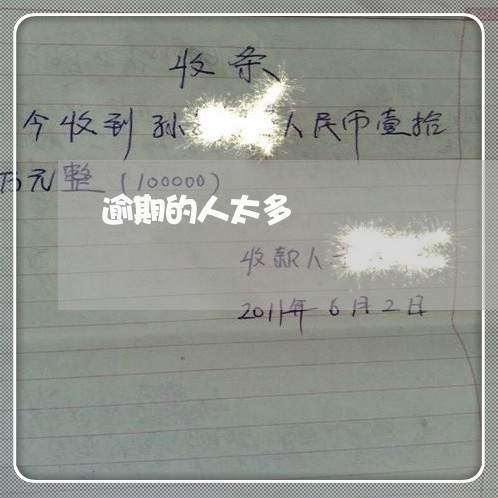 收条
今收到孙 人民币壹拾
万元整（100000）
逾期的人太多
收款人
2011年6月2日